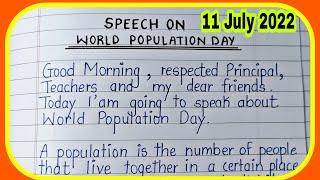 11 July 2022
SPEECH ON
WORLD POPULATION DAY
Good Morning, respected Principal,
Teachers and my dear friends.
Today I'am going to speak about
World Population Day.
A population is the number of people
that live together in a certain place